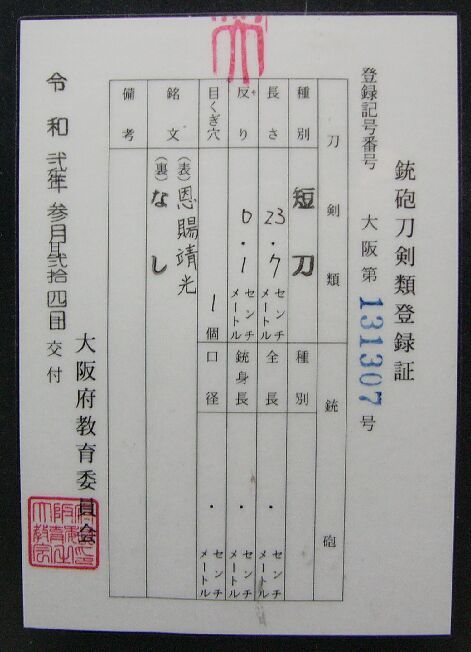 銃砲刀剣類登録証
登録記号番号 大阪第 131307 号
刀剣類 銃砲
種別 短刀 種別
長さ 23.7 センチメートル 全長 . センチメートル
反り 0.1 センチメートル 銃身長 . センチメートル
目くぎ穴 1個 口径 . センチメートル
銘文 (表) 恩賜靖光
(裏) なし
備考
令和 弐年 参月 弐拾四日 交付
大阪府教育委員会